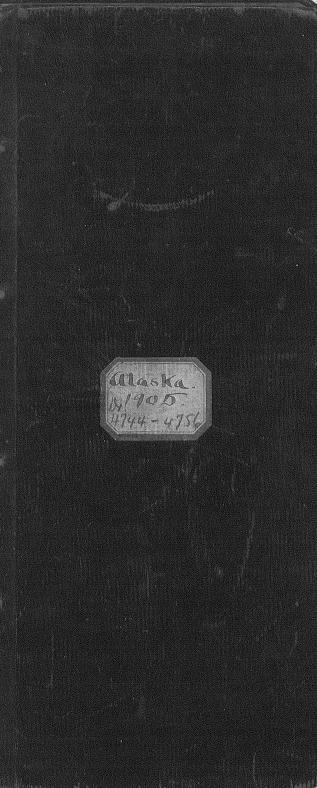 Alaska.
1905.
4744-4756